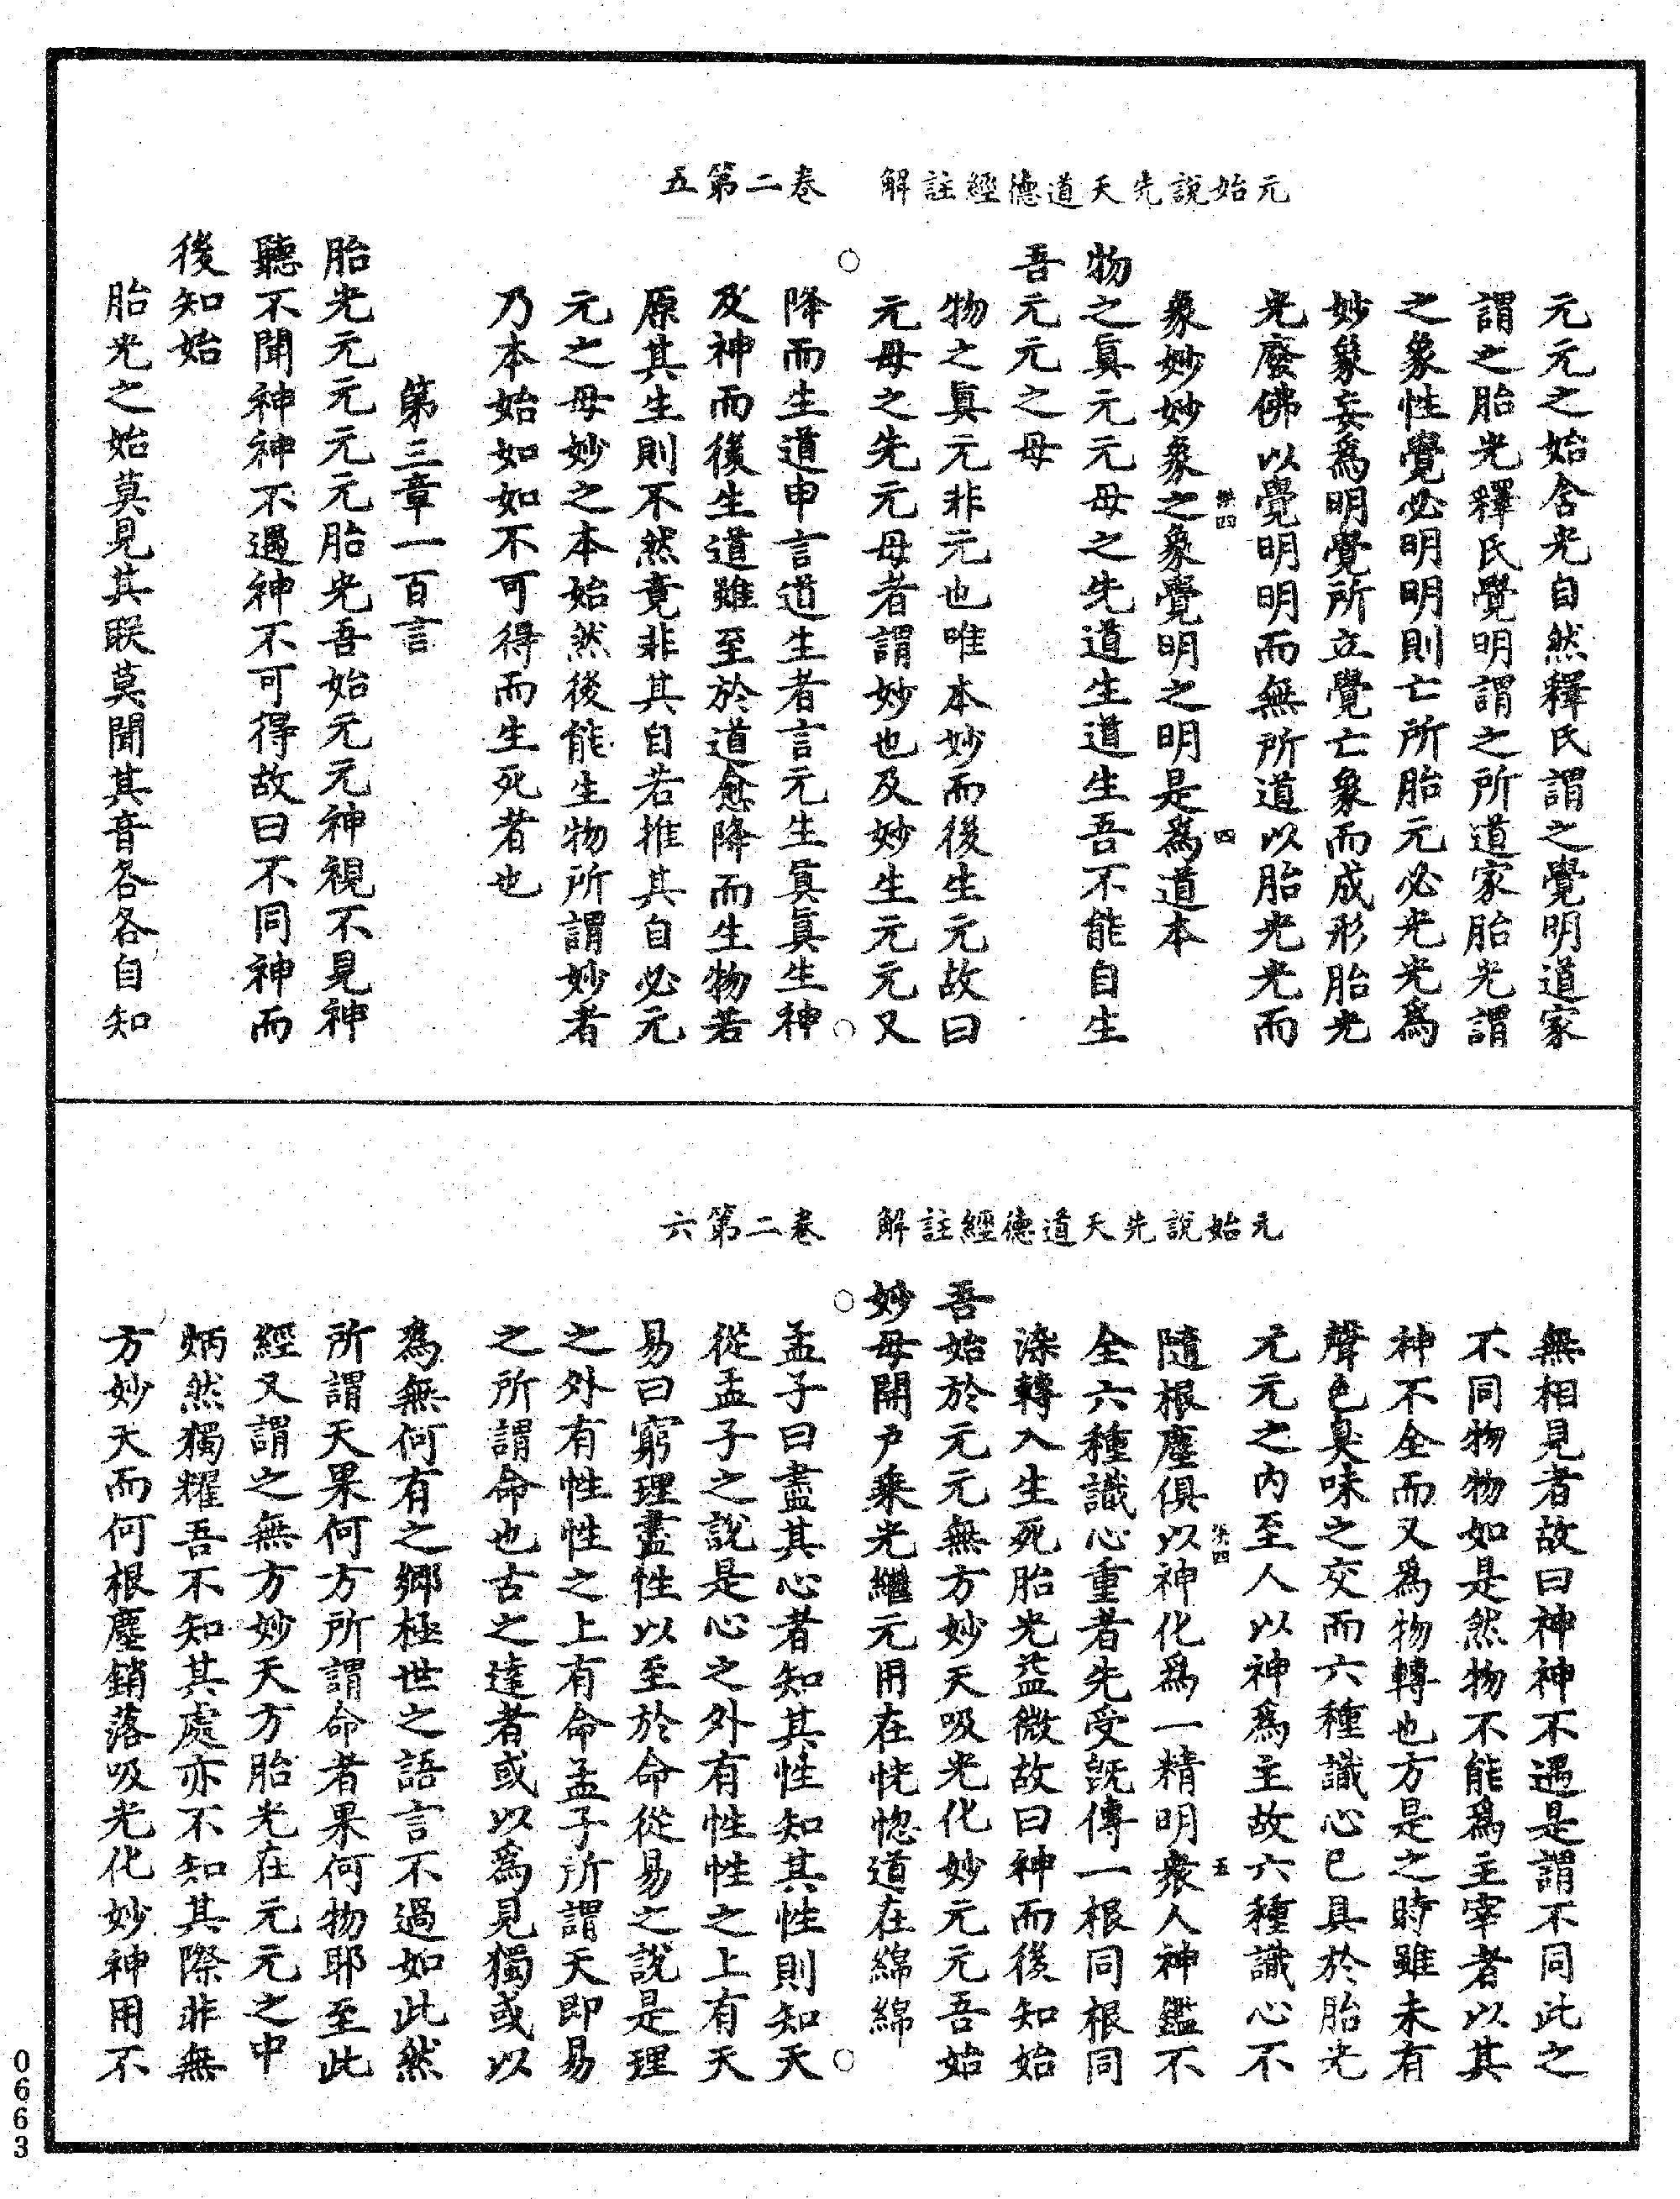 元始說先天道德經註解　卷二第五
元元之始含光自然釋氏謂之覺明道家
謂之胎光釋氏覺明謂之所道家胎光謂
之象性覺必明明則亡所胎元必光光爲
妙象妄爲明覺所立覺亡象而成形胎光
光廢佛以覺明明而無所道以胎光光而
象妙妙象之象覺明之明是爲道本
四
物之眞元元母之先道生道生吾不能自生
吾元元之母
物之眞元非元也唯本妙而後生元故曰
元母之先元母者謂妙也及妙生元元又
降而生道申言道生者言元生眞眞生神
及神而後生道雖至於道愈降而生物若
原其生則不然竟非其自若推其自必元
元之母妙之本始然後能生物所謂妙者
乃本始如如不可得而生死者也
第三章一百言
胎光元元元元胎光吾始元元神視不見神
聽不聞神神不遇神不可得故曰不同神而
後知始
胎光之始莫見其眹莫聞其音各各自知
元始說先天道德經註解　卷二第六
無相見者故曰神神不遇是謂不同此之
不同物物如是然物不能爲主宰者以其
神不全而又爲物轉也方是之時雖未有
聲色臭味之交而六種識心已具於胎光
元元之內至人以神爲主故六種識心不
隨根塵俱以神化爲一精明衆人神鑑不
五
全六種識心重者先受旣傳一根同根同
染轉入生死胎光益微故曰神而後知始
吾始於元元無方妙天吸光化妙元元吾始
妙母開戶乘光繼元用在恍惚道在綿綿
孟子曰盡其心者知其性知其性則知天
從孟子之說是心之外有性性之上有天
易曰窮理盡性以至於命從易之說是理
之外有性性之上有命孟子所謂天即易
之所謂命也古之達者或以爲見獨或以
爲無何有之鄉極世之語言不過如此然
所謂天果何方所謂命者果何物耶至此
經又謂之無方妙天方胎光在元元之中
炳然獨耀吾不知其處亦不知其際非無
方妙天而何根塵銷落吸光化妙神用不
0663